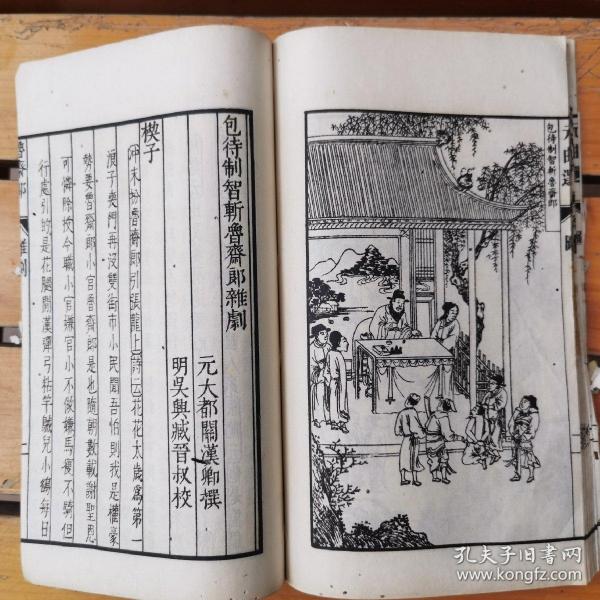 元曲選
圖
包待制智斬魯齋郎
包待制智斬魯齋郎雜劇
元大都關漢卿撰
明吳興臧晉叔校
楔子
冲末扮魯齋郎引張龍上詩云花花太歲爲第一
浪子喪門再沒雙街市小民聞吾怕則我是權豪
勢要魯齋郎小官魯齋郎是也隨朝數載謝聖恩
可憐除授今職小官嫌官小不做嫌馬瘦不騎但
行處引的是花腿閑漢彈弓粘竿兒小鷂每日
魯齋郎
雜劇
孔夫子旧书网
www.kongfz.com